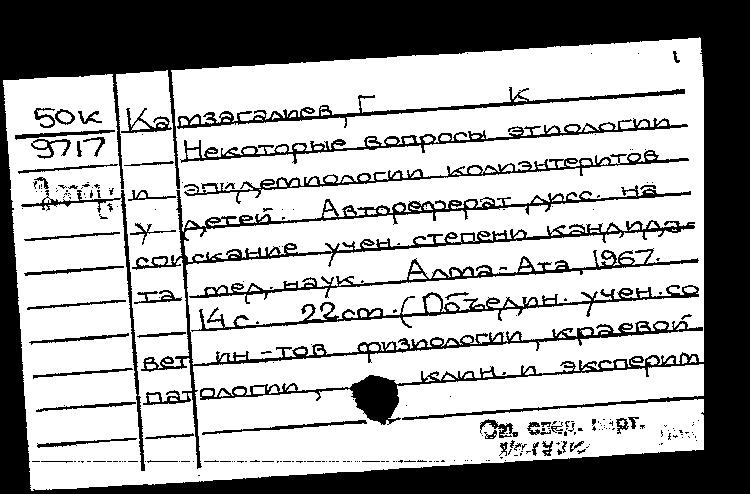 1
50к Камзагалиев, Г К
9717 Некоторые вопросы этиологии
и эпидемиологии колиэнтеритов
у детей. Автореферат дисс. на
соискание учен. степени кандида-
та мед. наук. Алма-Ата, 1967.
14с. 22см. (Объедин. учен. со
вет ин-тов физиологии, краевой
патологии, клин. и эксперим
См. след. карт.